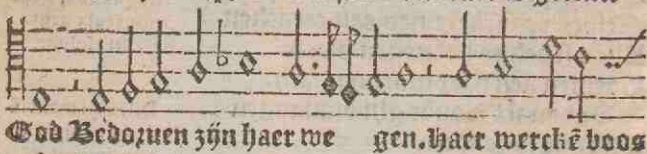 God Bedoruen zijn haer we gen. Haer werckē boos